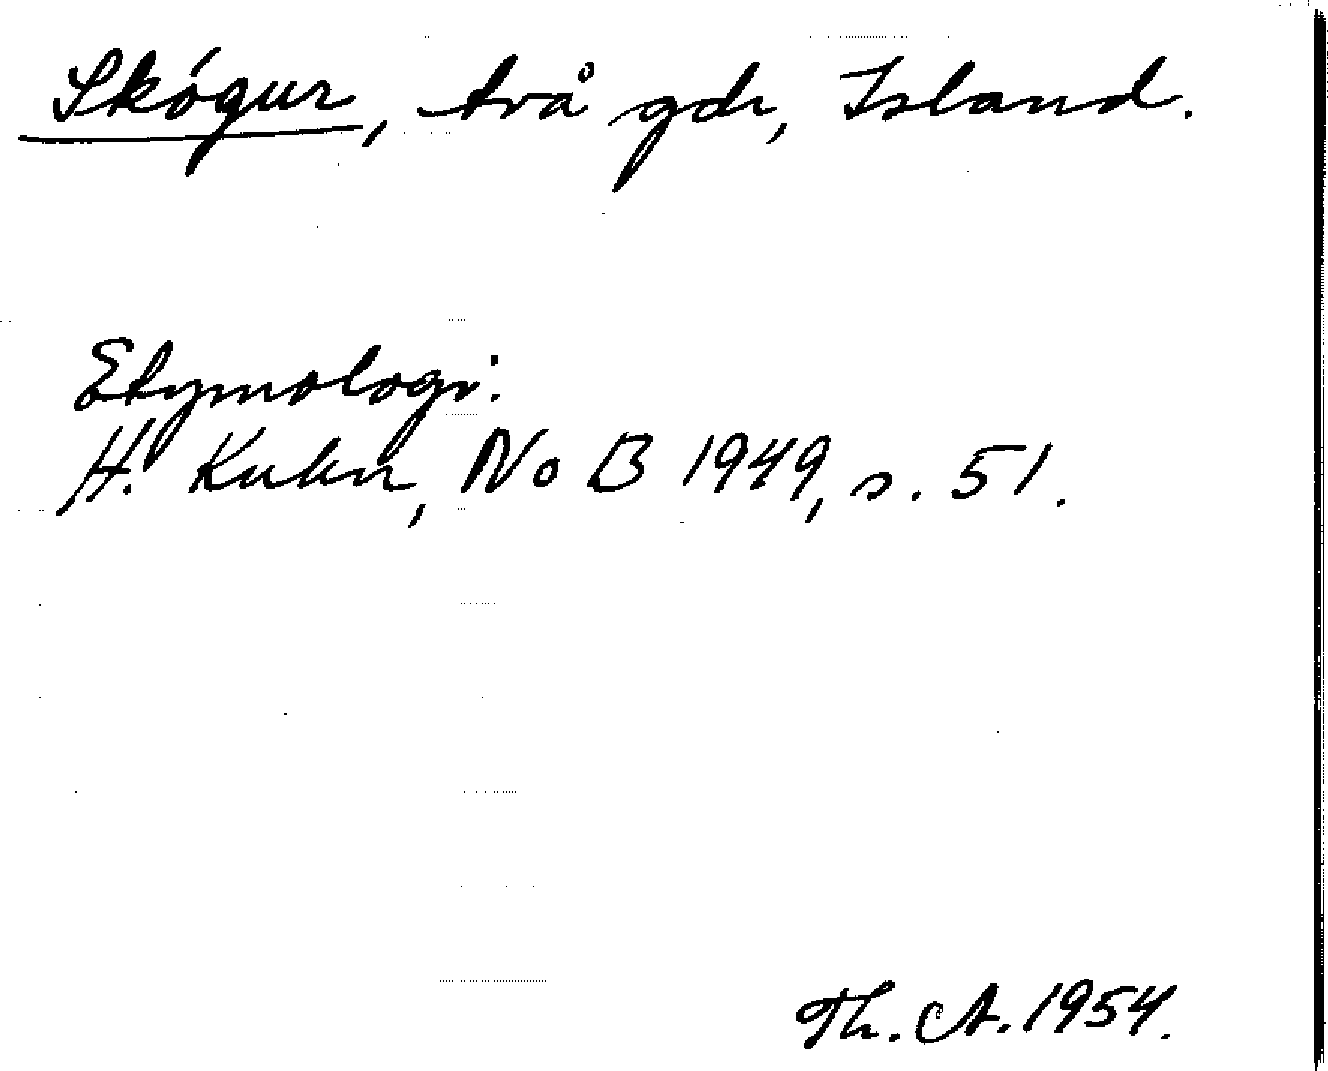 Skógur, två gdr, Island.
Etymologi:
H. Kuhn, NoB 1949, s. 51.
Th. A. 1954.